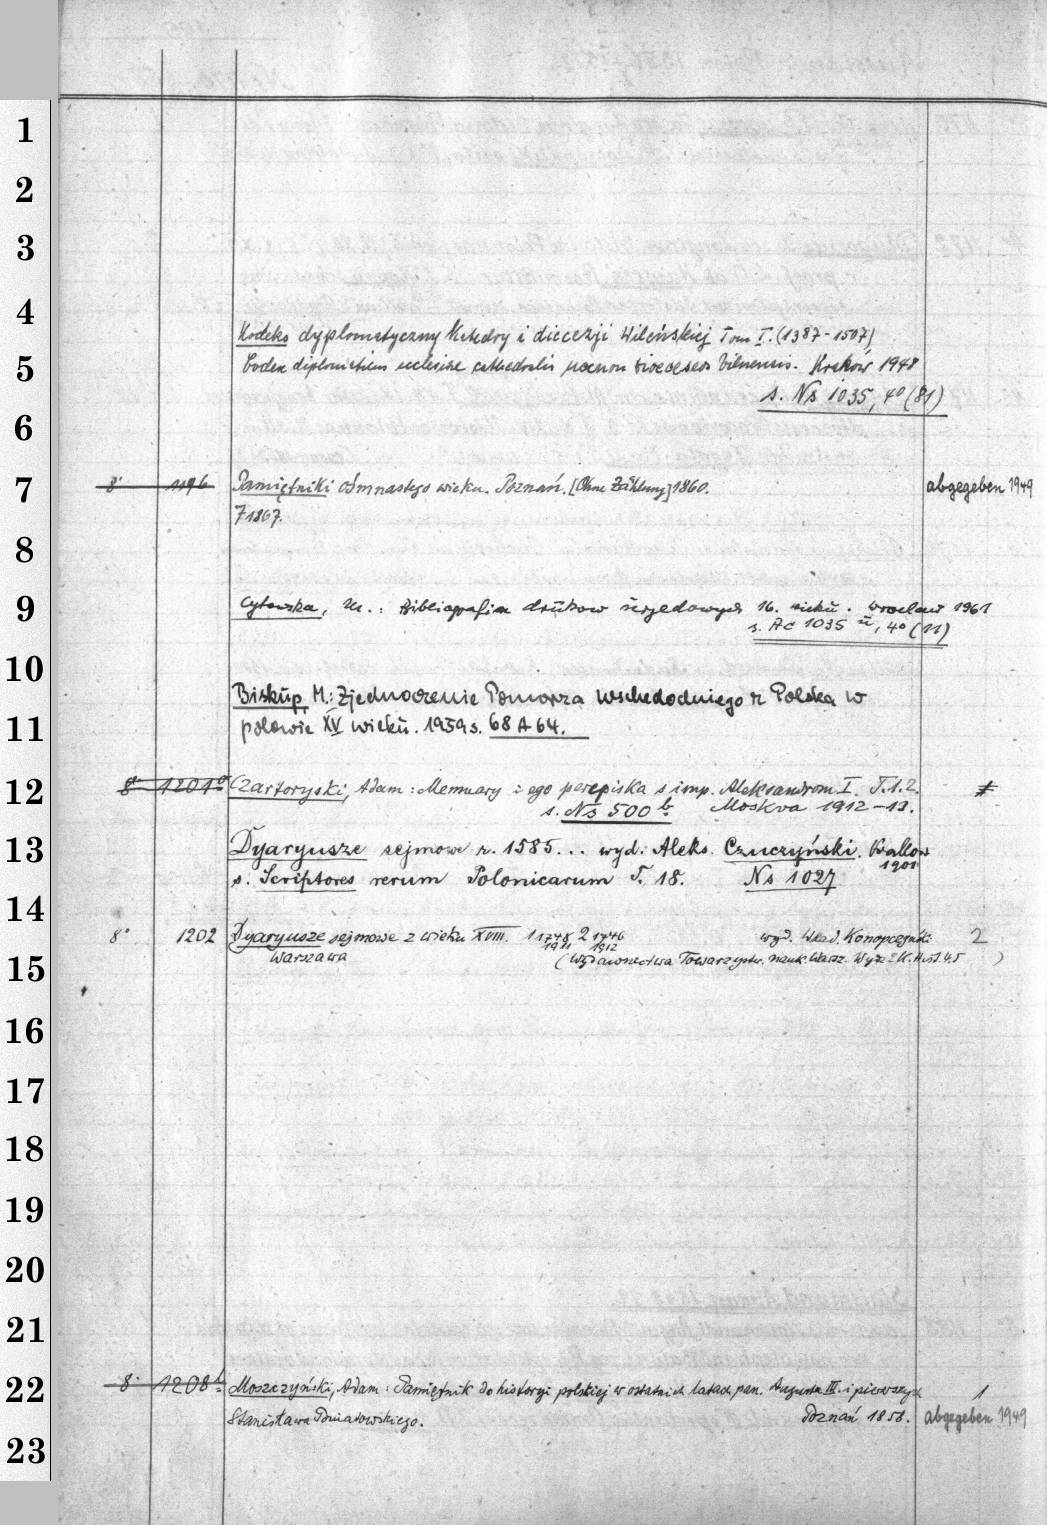 1
2
3
4
Kodeks dyplomatyczny Katedry i diecezji Wileńskiej Tom I. (1387-1507)
5
Codex diplomaticus ecclesiae cathedralis necnon dioeceseos Vilnensis. Kraków 1948
s. Ns 1035, 4° (81)
6
7
8° 1196 Pamiętniki ośmnastego wieku. Poznań. [Ohne Zählung] 1860. abgegeben 1949
7 1867.
8
9
Cytowska, M.: Bibliografia druków urzędowych 16. wieku. Wrocław 1961
s. Ac 1035 u, 4° (11)
10
Biskup, M.: Zjednoczenie Pomorza Wschodniego z Polską w
11
połowie XV wieku. 1959 s. 68 A 64.
12
8° 1201a Czartoryski, Adam: Memuary i ego perepiska s imp. Aleksandrom I. T. 1. 2.
s. Ns 500 b. Moskva 1912-13.
13
Dyaryusze sejmowe r. 1585... wyd. Aleks. Czuczyński. Krakow
1901
s. Scriptores rerum Polonicarum T. 18. Ns 1027
14
8° 1202 Dyaryusze sejmowe z wieku XVIII. 1 1748 2 1746 wyd. Wład. Konopczyński 2
1911 1912
15
Warszawa (Wydawnictwa Towarzystw. nauk. Warsz. Wydz. 2 K. Hist. 4.5)
16
17
18
19
20
21
22
8° 1208b Moszczyński, Adam: Pamiętnik do historyi polskiej w ostatnich latach pan. Augusta III. i pierwszych 1
Stanisława Poniatowskiego. Poznań 1858. abgegeben 1949
23